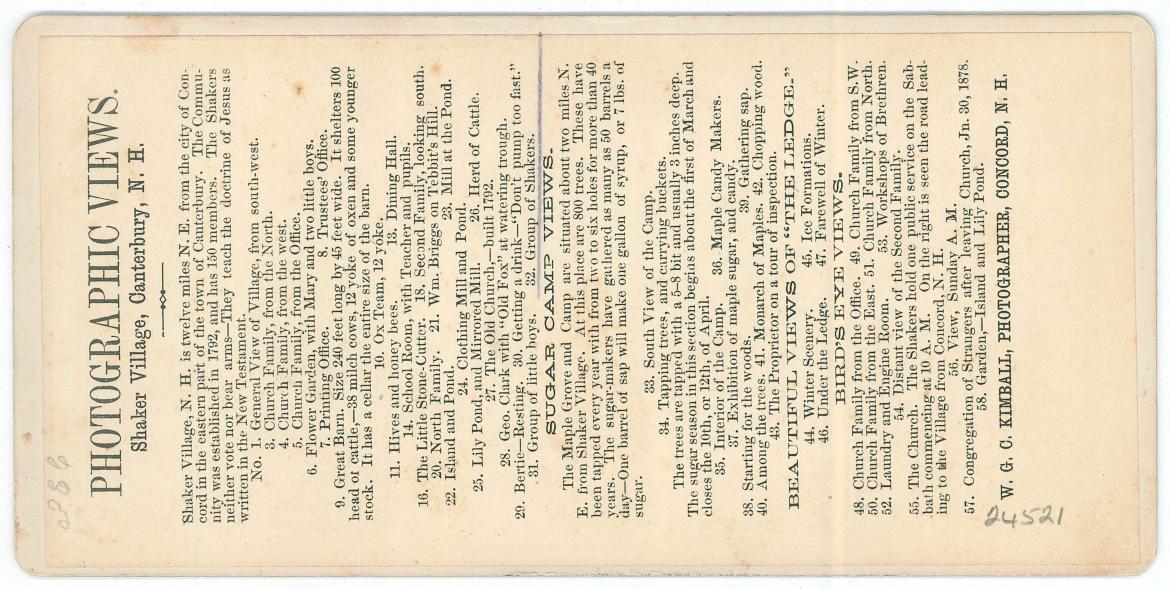 PHOTOGRAPHIC VIEWS.
Shaker Village, Canterbury, N. H.
Shaker Village, N. H. is twelve miles N. E. from the city of Con-
cord in the eastern part of the town of Canterbury. The Commu-
nity was established in 1792, and has 150 members. The Shakers
neither vote nor bear arms—They teach the doctrine of Jesus as
written in the New Testament.
No. 1. General View of Village, from south-west.
3. Church Family, from the North.
4. Church Family, from the west.
5. Church Family, from the Office.
6. Flower Garden, with Mary and two little boys.
7. Printing Office. 8. Trustees' Office.
9. Great Barn. Size 240 feet long by 45 feet wide. It shelters 100
head of cattle,—38 milch cows, 12 yoke of oxen and some younger
stock. It has a cellar the entire size of the barn.
10. Ox Team, 12 yoke.
11. Hives and honey bees. 13. Dining Hall.
14. School Room, with Teacher and pupils.
16. The Little Stone-Cutter. 18. Second Family, looking south.
20. North Family. 21. Wm. Briggs on Tebbit's Hill.
22. Island and Pond. 23. Mill at the Pond.
24. Clothing Mill and Pond.
25. Lily Pond, and Mirrored Mill. 26. Herd of Cattle.
27. The Old Church,—built 1792.
28. Geo. Clark with "Old Fox" at watering trough.
29. Bertie—Resting. 30. Getting a drink—"Don't pump too fast."
31. Group of little boys. 32. Group of Shakers.
SUGAR CAMP VIEWS.
The Maple Grove and Camp are situated about two miles N.
E. from Shaker Village. At this place are 800 trees. These have
been tapped every year with from two to six holes for more than 40
years. The sugar-makers have gathered as many as 50 barrels a
day—One barrel of sap will make one gallon of syrup, or 7 lbs. of
sugar.
33. South View of the Camp.
34. Tapping trees, and carrying buckets.
The trees are tapped with a 5-8 bit and usually 3 inches deep.
The sugar season in this section begins about the first of March and
closes the 10th, or 12th, of April.
35. Interior of the Camp. 36. Maple Candy Makers.
37. Exhibition of maple sugar, and candy.
38. Starting for the woods. 39. Gathering sap.
40. Among the trees. 41. Monarch of Maples. 42. Chopping wood.
43. The Proprietor on a tour of inspection.
BEAUTIFUL VIEWS OF "THE LEDGE."
44. Winter Scenery. 45. Ice Formations.
46. Under the Ledge. 47. Farewell of Winter.
BIRD'S EYE VIEWS.
48. Church Family from the Office. 49. Church Family from S.W.
50. Church Family from the East. 51. Church Family from North.
52. Laundry and Engine Room. 53. Workshops of Brethren.
54. Distant view of the Second Family.
55. The Church. The Shakers hold one public service on the Sab-
bath commencing at 10 A. M. On the right is seen the road lead-
ing to the Village from Concord, N. H.
56. View, Sunday A. M.
57. Congregation of Strangers after leaving Church, Jn. 30, 1878.
58. Garden,—Island and Lily Pond.
W. G. C. KIMBALL, PHOTOGRAPHER, CONCORD, N. H.
24521